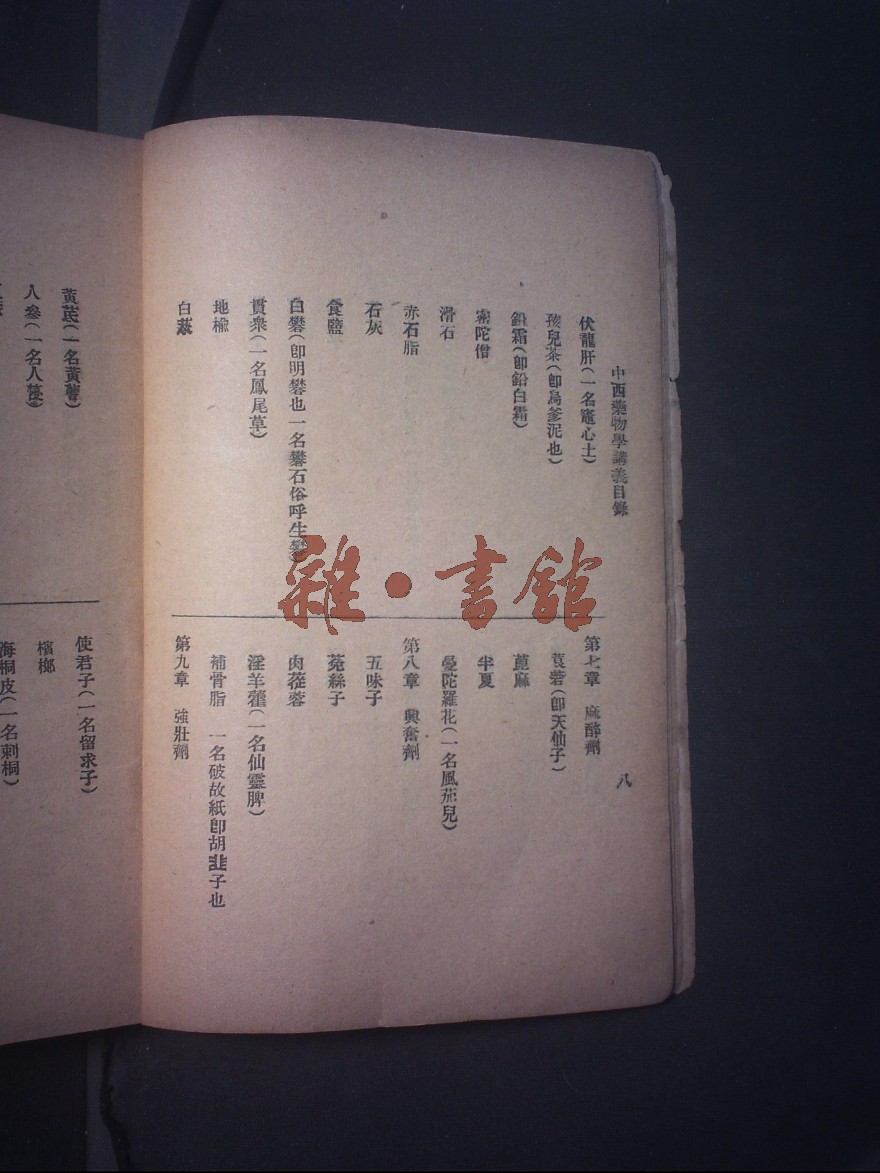 中西藥物學講義目錄
八
伏龍肝(一名竈心土)
孩兒茶(卽烏爹泥也)
鉛霜(卽鉛白霜)
密陀僧
滑石
赤石脂
石灰
食鹽
白礬(卽明礬也一名礬石俗呼生礬)
貫衆(一名鳳尾草)
地楡
白蘞
第七章 麻醉劑
莨菪(卽天仙子)
蓖麻
半夏
曼陀羅花(一名風茄兒)
第八章 興奮劑
五味子
菟絲子
肉蓯蓉
淫羊藿(一名仙靈脾)
補骨脂 一名破故紙卽胡韭子也
第九章 強壯劑
黃芪(一名黃蓍)
人參(一名人蓡)
使君子(一名留求子)
檳榔
海桐皮(一名刺桐)
雜·書舘